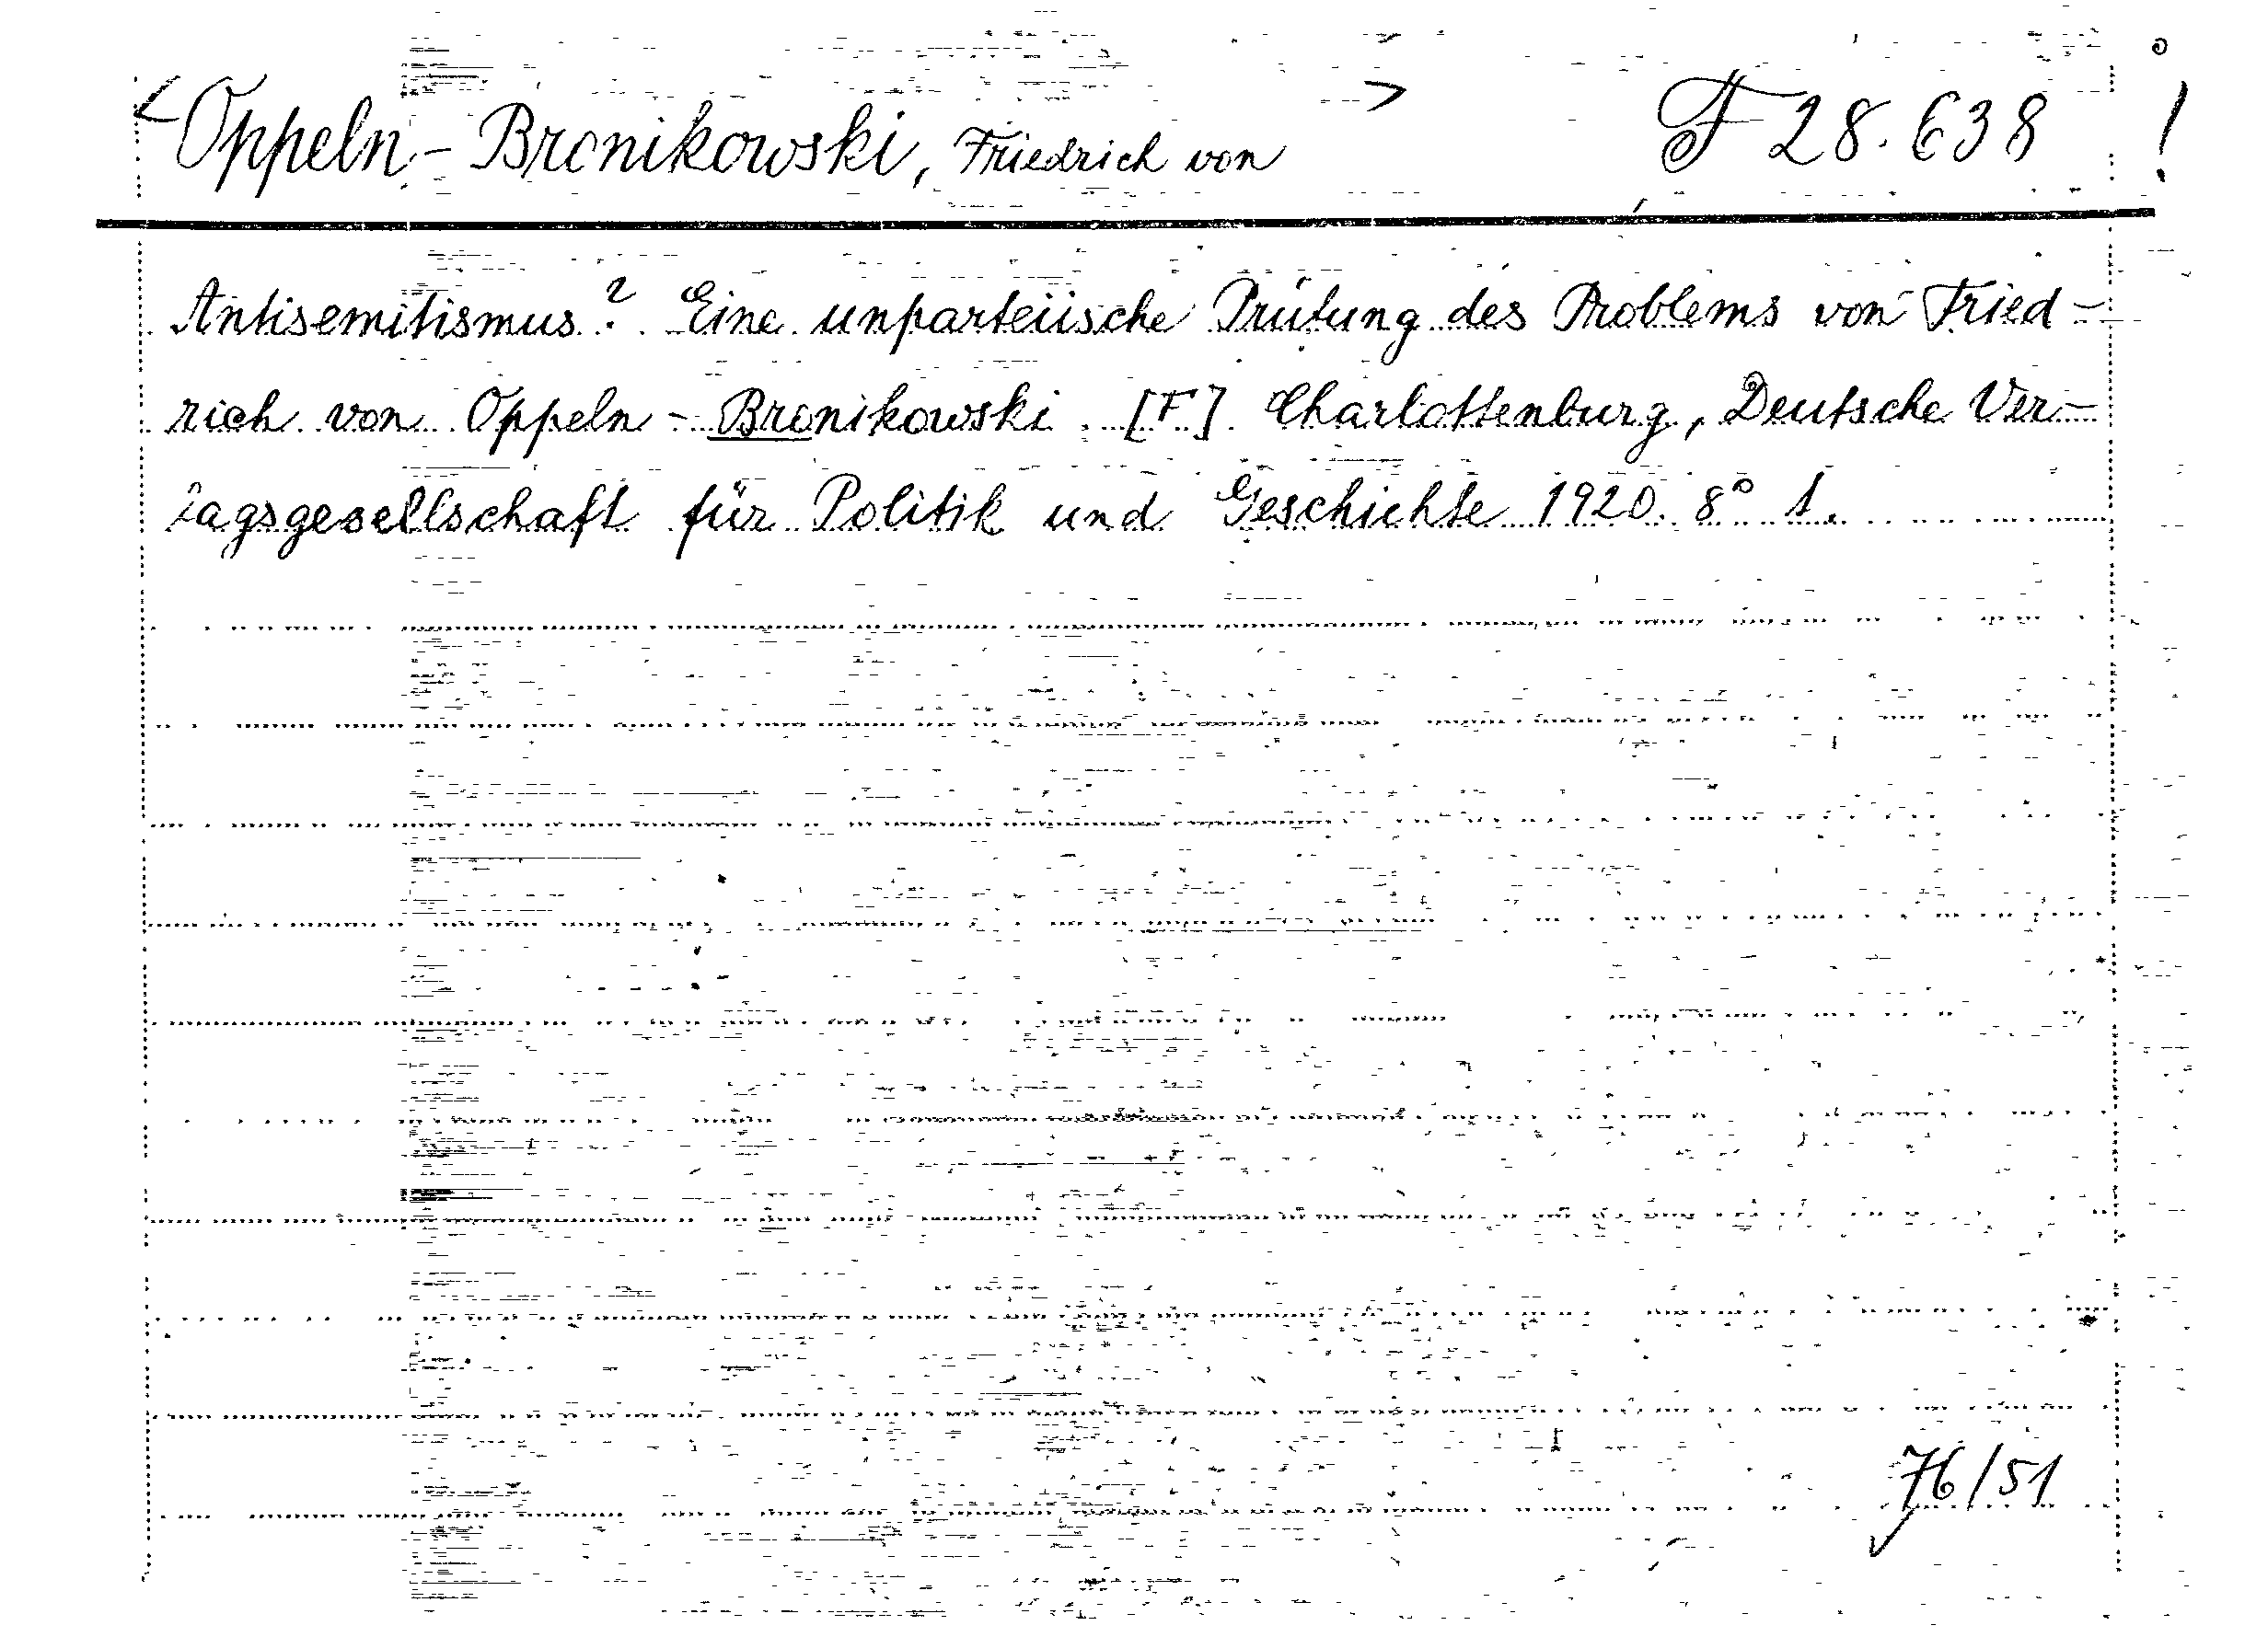 <Oppeln-Bronikowski, Friedrich von > F 28.638 !
Antisemitismus? Eine unparteiische Prüfung des Problems von Fried-
rich von Oppeln-Bronikowski. [F.] Charlottenburg, Deutsche Ver-
lagsgesellschaft für Politik und Geschichte 1920. 8° 1.
76/51